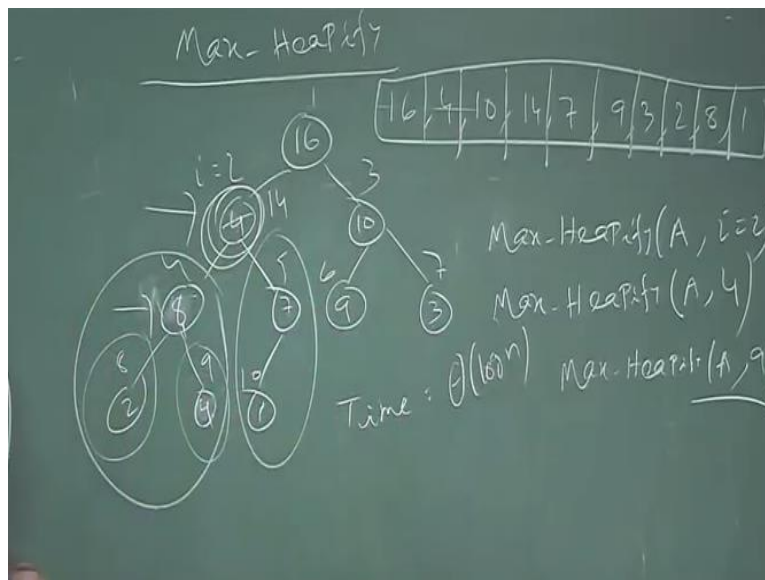 Max-Heapify
16 4 10 14 7 9 3 2 8 1
1
16
i=2
4 14
3
10
4
8
5
7
6
9
7
3
8
2
9
4
10
1
Max-Heapify(A, i=2)
Max-Heapify(A, 4)
Max-Heapify(A, 9
Time :